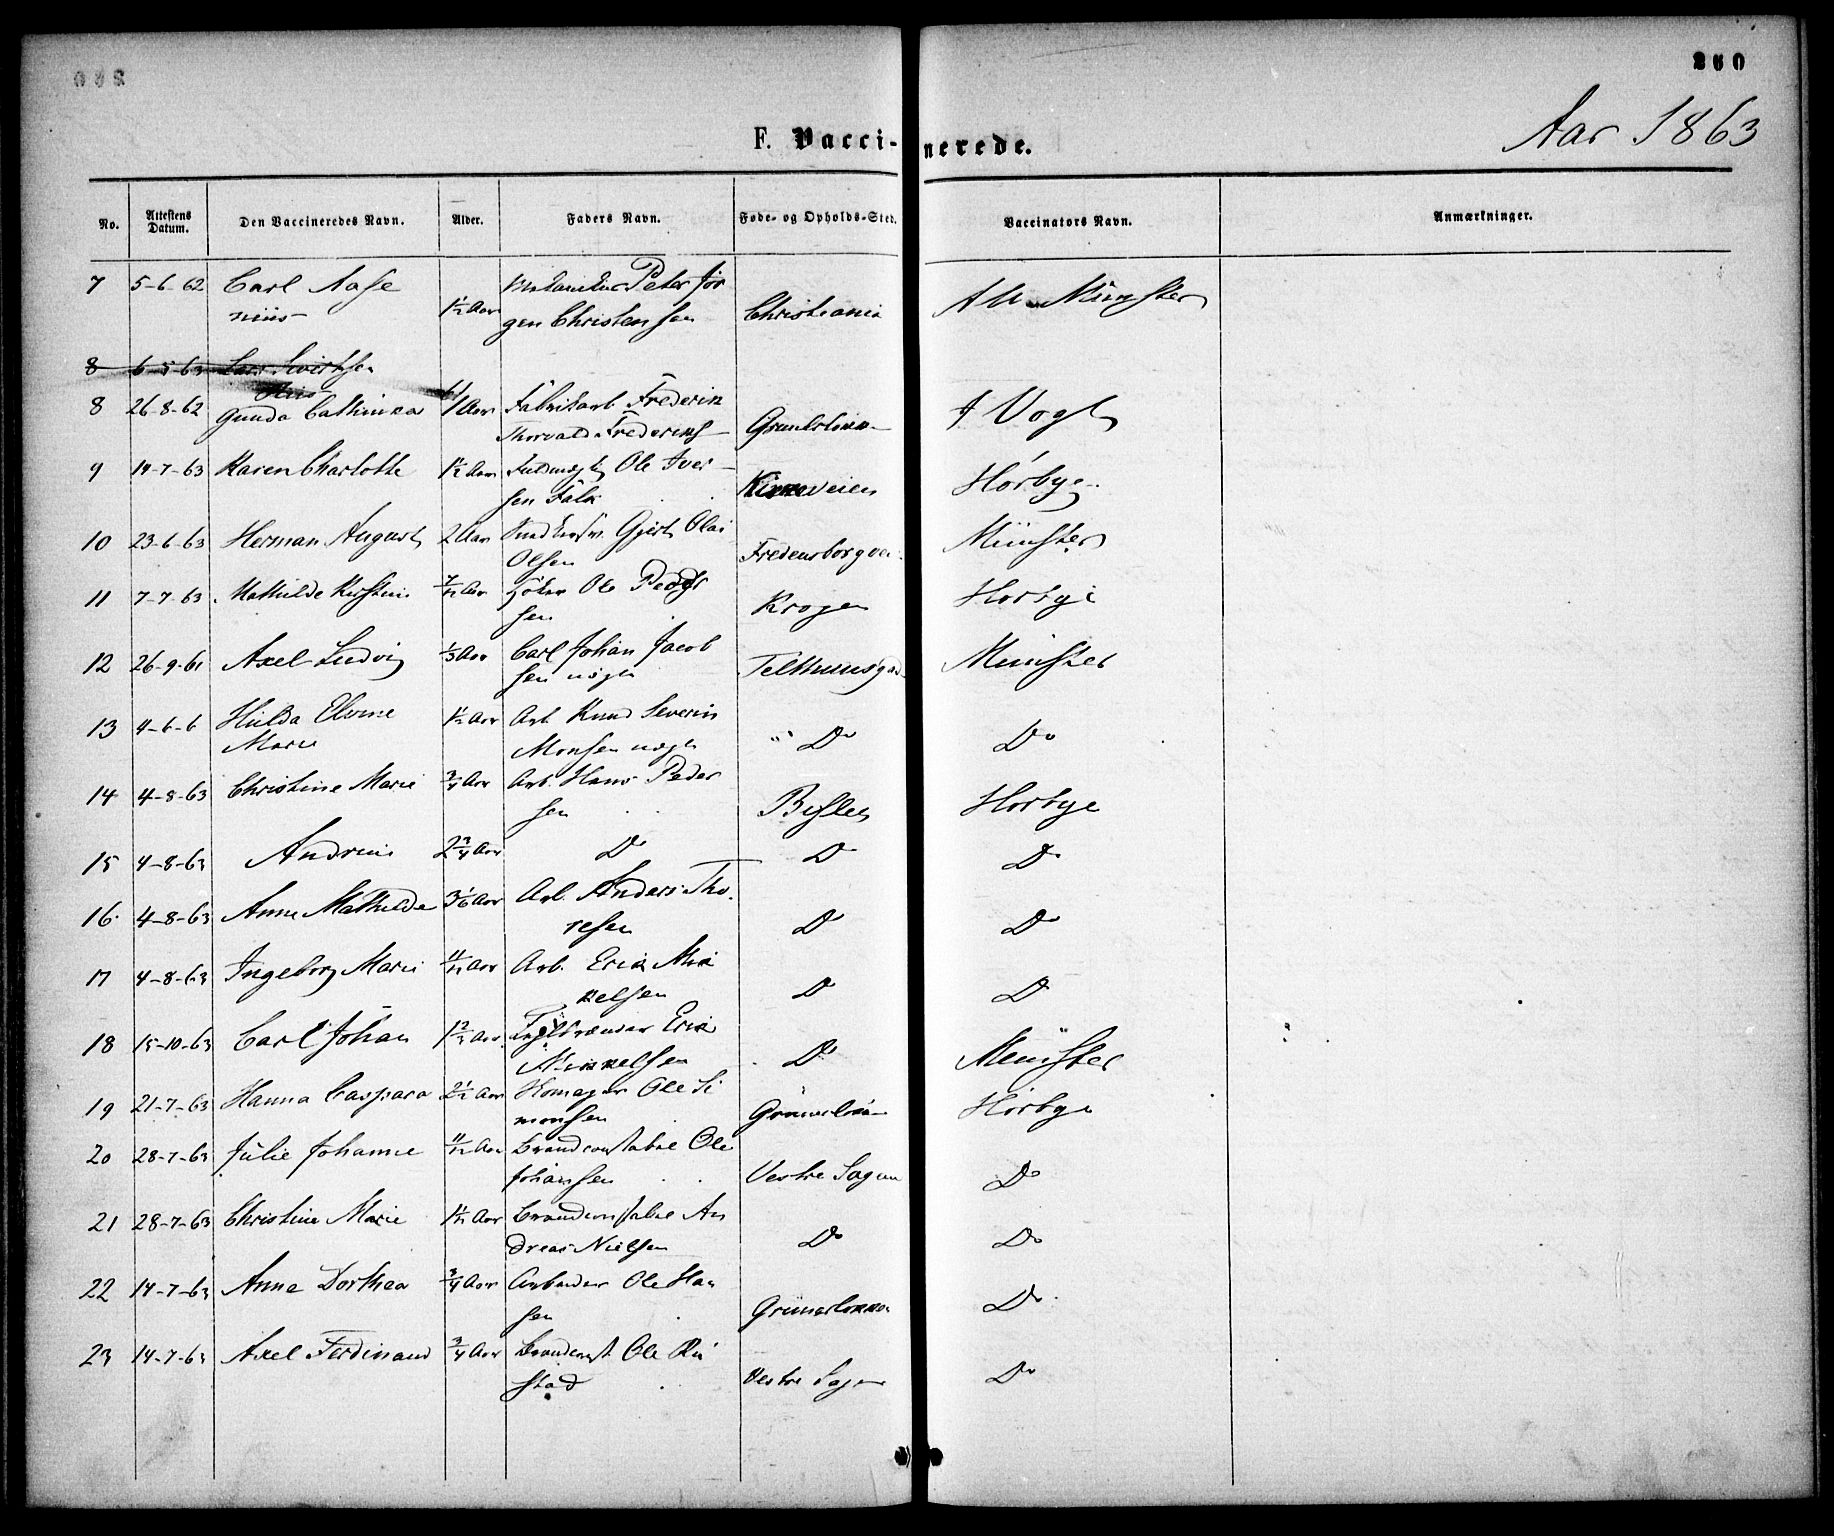 260
Aar 1863
F. Vacci- nerede.
No. Attestens Datum. Den Vaccineredes Navn. Alder. Faders Navn. Føde- og Opholds-Sted. Vaccinators Navn. Anmærkninger.
7 5-6-62 Carl Aage 1½ Aar Peter Jør
gen Christensen Christiania Münster
8 6-5-63
8 26-8-62 Gunda Cathinca 1 Aar Fabrikarb. Frederik
Thorvald Frederiks Vogt
9 14-7-63 Karen Charlotte 1½ Aar Fuldmægtig Ole Iver
sen Falk veien Hørbye
10 23-6-63 Herman August 2 Aar Gjert Olai
Olsen Fredensborgvei Münster
11 7-7-63 Mathilde Kirstine 7/12 Aar Ole Peder
sen Krogen Hørbye
12 26-9-61 Axel Ludvig ⅓ Aar Carl Johan Jacob
sen Telthuusgad Münster
13 4-6-6 Hilda
Marie 1½ Aar Arb. Knud Severin
Monsen Do Do
14 4-8-63 Christine Marie ¾ Aar Arb. Hans Peder
sen Bislet Hørbye
15 4-8-63 Andrine 2¾ Aar Do Do Do
16 4-8-63 Anne Mathilde 3 1/6 Aar Arb. Anders Tho
resen Do Do
17 4-8-63 Ingeborg Marie 11/12 Aar Arb. Erik Mik
kelsen Do Do
18 15-10-63 Carl Johan 1⅔ Aar Teglbrænder Erik
Mikkelsen Do Münster
19 21-7-63 Hanna Caspara 2½ Aar Skomager Ole Si
monsen Grünerløkk Hørbye
20 28-7-63 Julie Johanne 11/12 Aar Brandconstabel Ole
Johansen Vestre Sagen Do
21 28-7-63 Christine Marie 1½ Aar Brandconstabel An
dreas Nielsen Do Do
22 14-7-63 Anne Dorthea ¾ Aar Arbeider Ole Han
sen Grünerløkken Do
23 14-7-63 Axel Ferdinand ¾ Aar Brandconst Ole Ri
stad Vestre Sagen Do